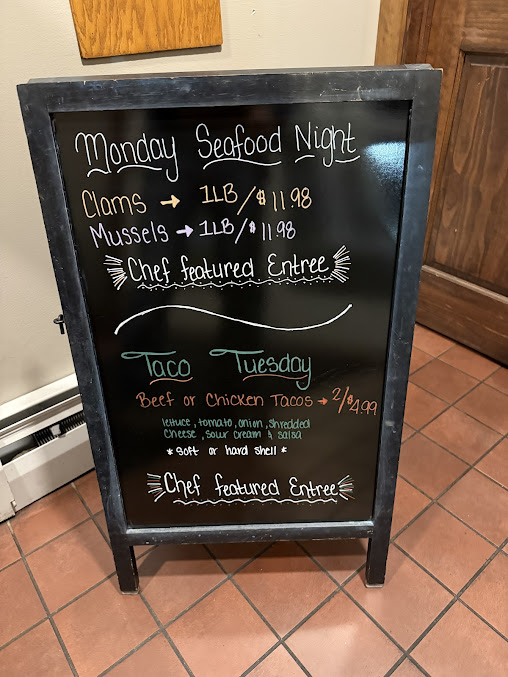 Monday Seafood Night
Clams → 1LB/$11.98
Mussels → 1LB/$11.98
Chef featured Entree
Taco Tuesday
Beef or Chicken Tacos → 2/$4.99
lettuce, tomato, onion, shredded
cheese, sour cream & salsa
* Soft or hard shell *
Chef featured Entree